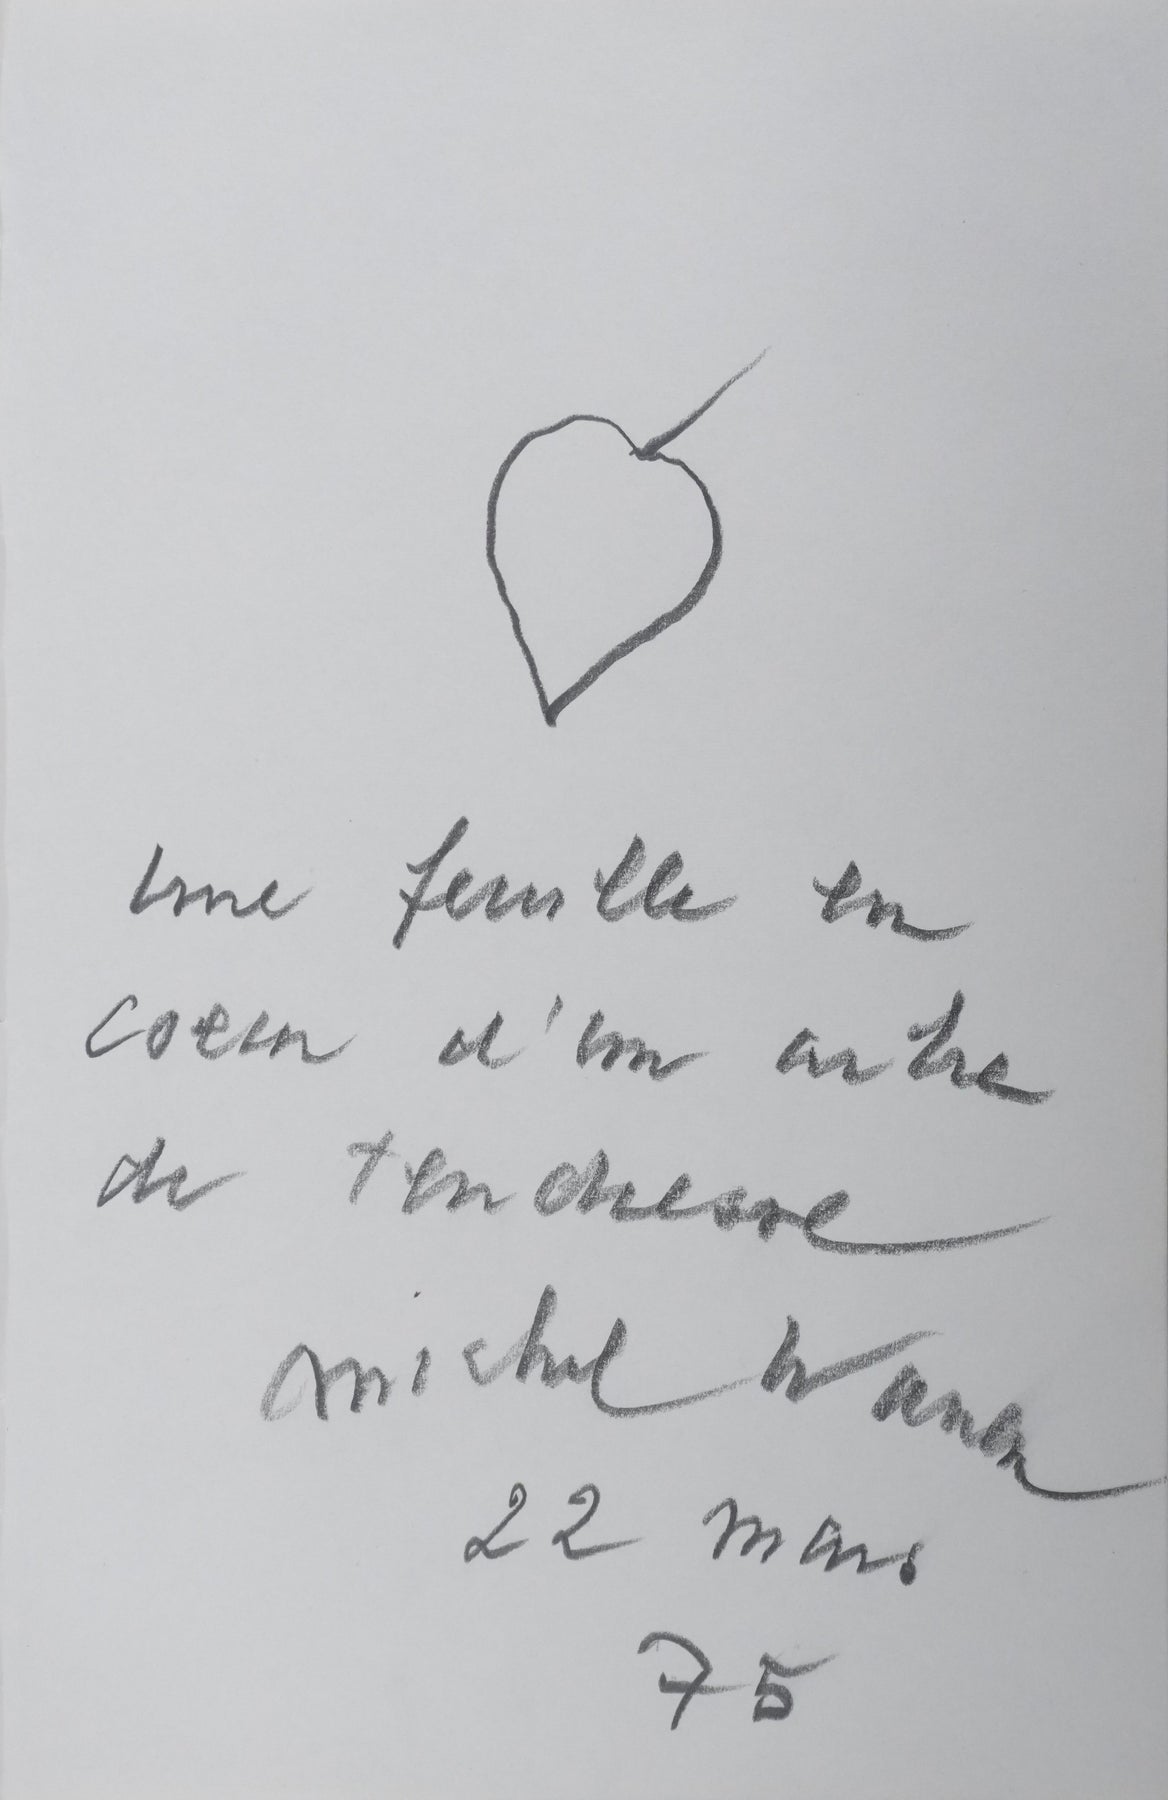 une feuille en
coeur d'un arbre
de tendresse
michel
22 mars
75